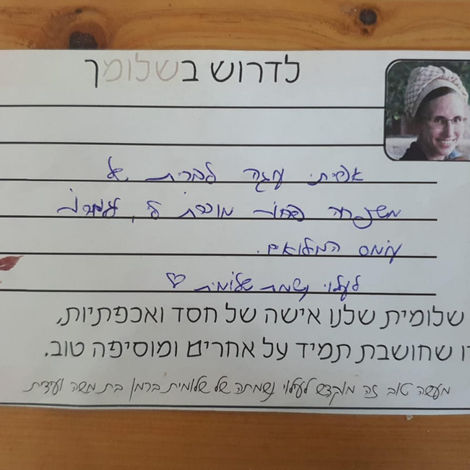 לדרוש בשלומך
אפיתי עוגה לברית של
משפחה פחות מוכרת לי, למרות
עומס המילואים.
לעלוי נשמת שלומית ♡
שלומית שלנו אישה של חסד ואכפתיות,
שחושבת תמיד על אחרים ומוסיפה טוב.
מעשה טוב זה מוקדש לעילוי נשמתה של שלומית ברמן בת משה ועידית